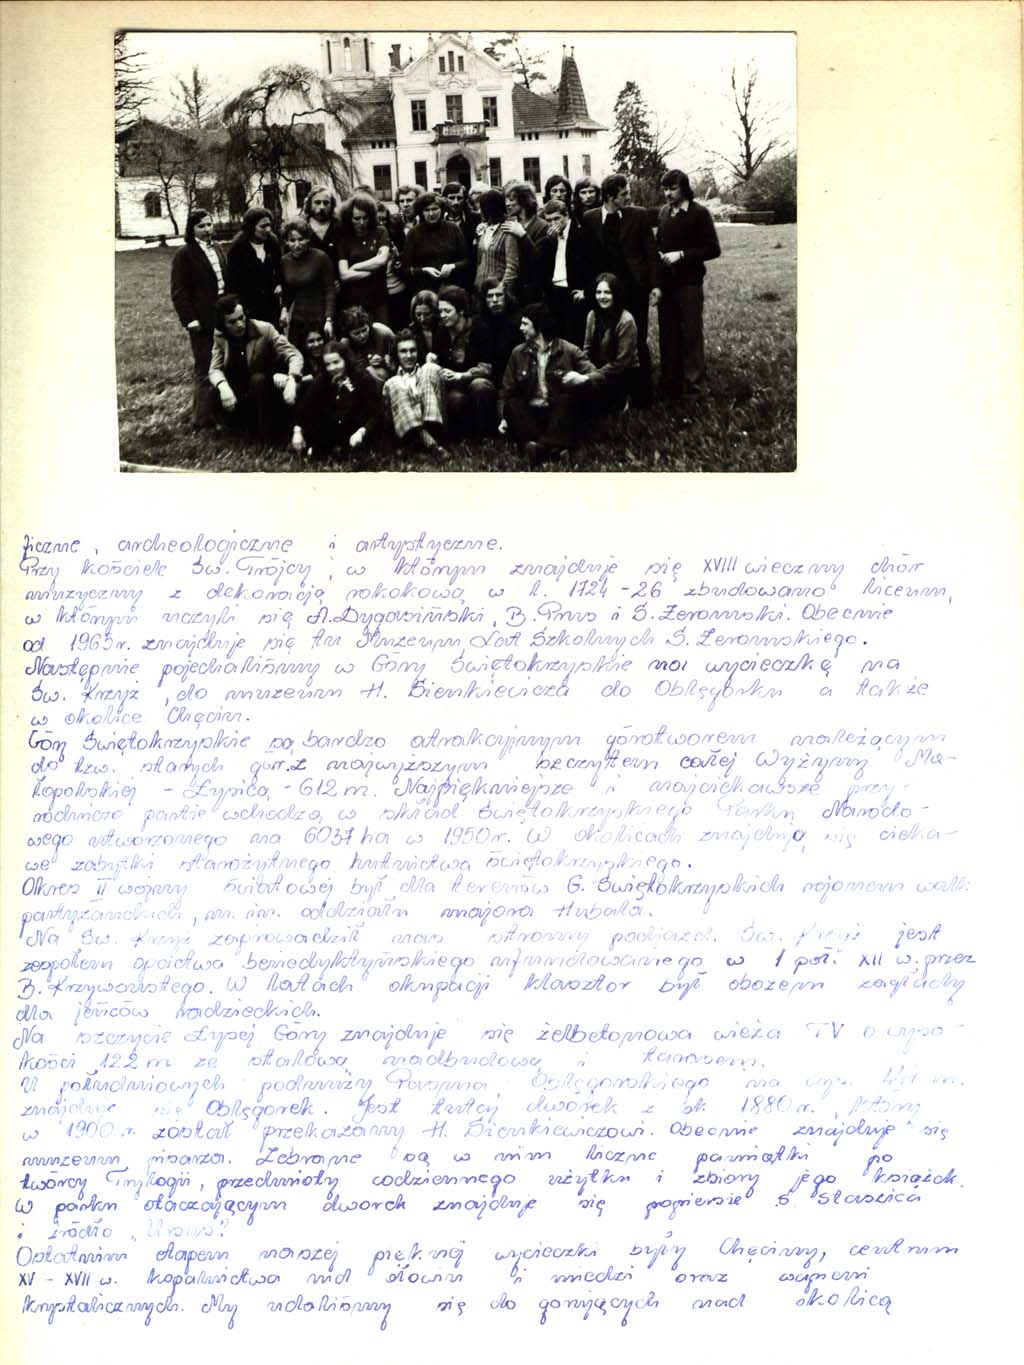 ficzne, archeologiczne i artystyczne.
Przy kościele Św. Trójcy, w którym znajduje się XVIII wieczny chór
muzyczny z dekoracją rokokową w l. 1724-26 zbudowano liceum,
w którym uczyli się A. Dygasiński, B. Prus i S. Żeromski. Obecnie
od 1965r. znajduje się tu Muzeum Lat Szkolnych S. Żeromskiego.
Następnie pojechaliśmy w Góry Świętokrzyskie na wycieczkę na
Św. Krzyż, do muzeum H. Sienkiewicza do Oblęgorka a także
w okolice Chęcin.
Góry Świętokrzyskie są bardzo atrakcyjnym górotworem należącym
do tzw. starych gór z najwyższym szczytem całej Wyżyny Ma-
łopolskiej - Łysicą - 612 m. Najpiękniejsze i najciekawsze przy-
rodniczo partie wchodzą w skład Świętokrzyskiego Parku Narodo-
wego utworzonego na 6037 ha w 1950r. W okolicach znajdują się cieka-
we zabytki starożytnego hutnictwa świętokrzyskiego.
Okres II wojny światowej był dla terenów G. Świętokrzyskich rejonem walk
partyzanckich, m. in. oddziału majora Hubala.
Na Św. Krzyż zaprowadził nas stromy podjazd. Św. Krzyż jest
zespołem opactwa benedyktyńskiego ufundowanego w 1 poł. XII w. przez
B. Krzywoustego. W latach okupacji klasztor był obozem zagłady
dla jeńców radzieckich.
Na szczycie Łysej Góry znajduje się żelbetonowa wieża TV o wyso-
kości 122 m ze stalową nadbudową i tarasem.
U południowych podnóży Pasma Oblęgorskiego na wys. m.
znajduje się Oblęgorek. Jest tutaj dworek z ok. 1880 r., który
w 1900 r. został przekazany H. Sienkiewiczowi. Obecnie znajduje się
muzeum pisarza. Zebrane są w nim liczne pamiątki po
twórcy Trylogii, przedmioty codziennego użytku i zbiory jego książek.
W parku otaczającym dworek znajduje się popiersie S. Staszica
i źródło "Ursus"
Ostatnim etapem naszej pięknej wycieczki były Chęciny, centrum
XV - XVII w. kopalnictwa rud ołowiu i miedzi oraz wapieni
krystalicznych. My udaliśmy się do górujących nad okolicą